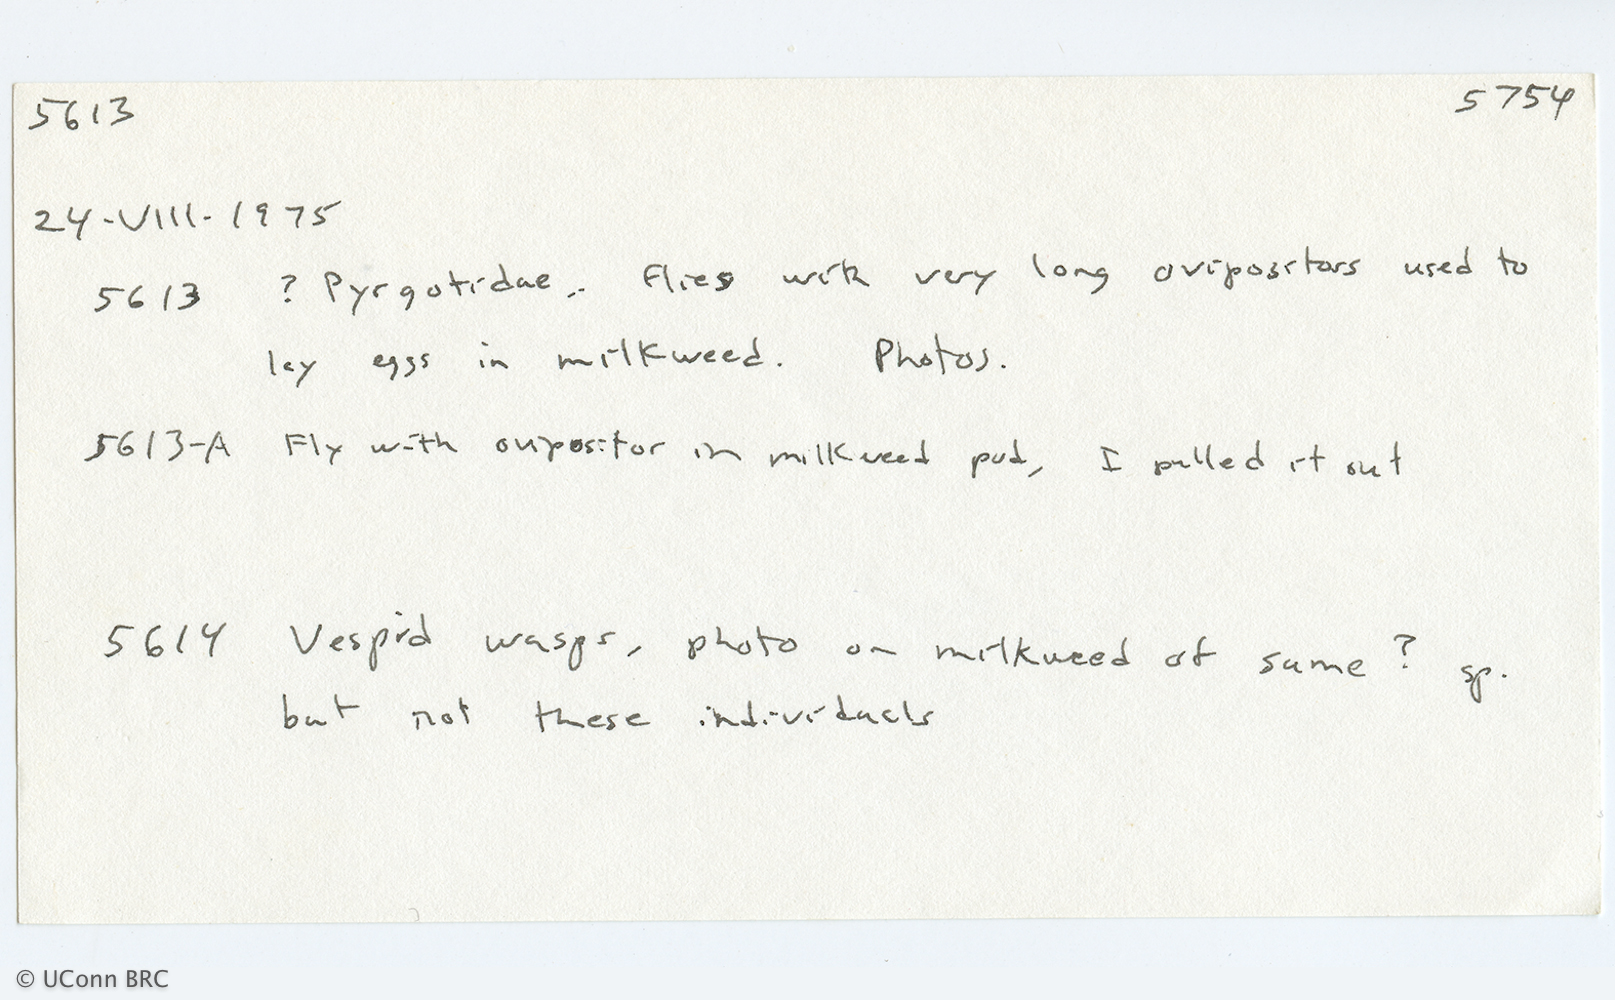 5613 5754
24-VIII-1975
5613 ? Pyrgotidae.. Flies with very long ovipositors used to
lay eggs in milkweed. Photos.
5613-A Fly with ovipositor in milkweed pod, I pulled it out
5614 Vespid wasps, photo on milkweed of same ? sp.
but not these individuals
© UConn BRC